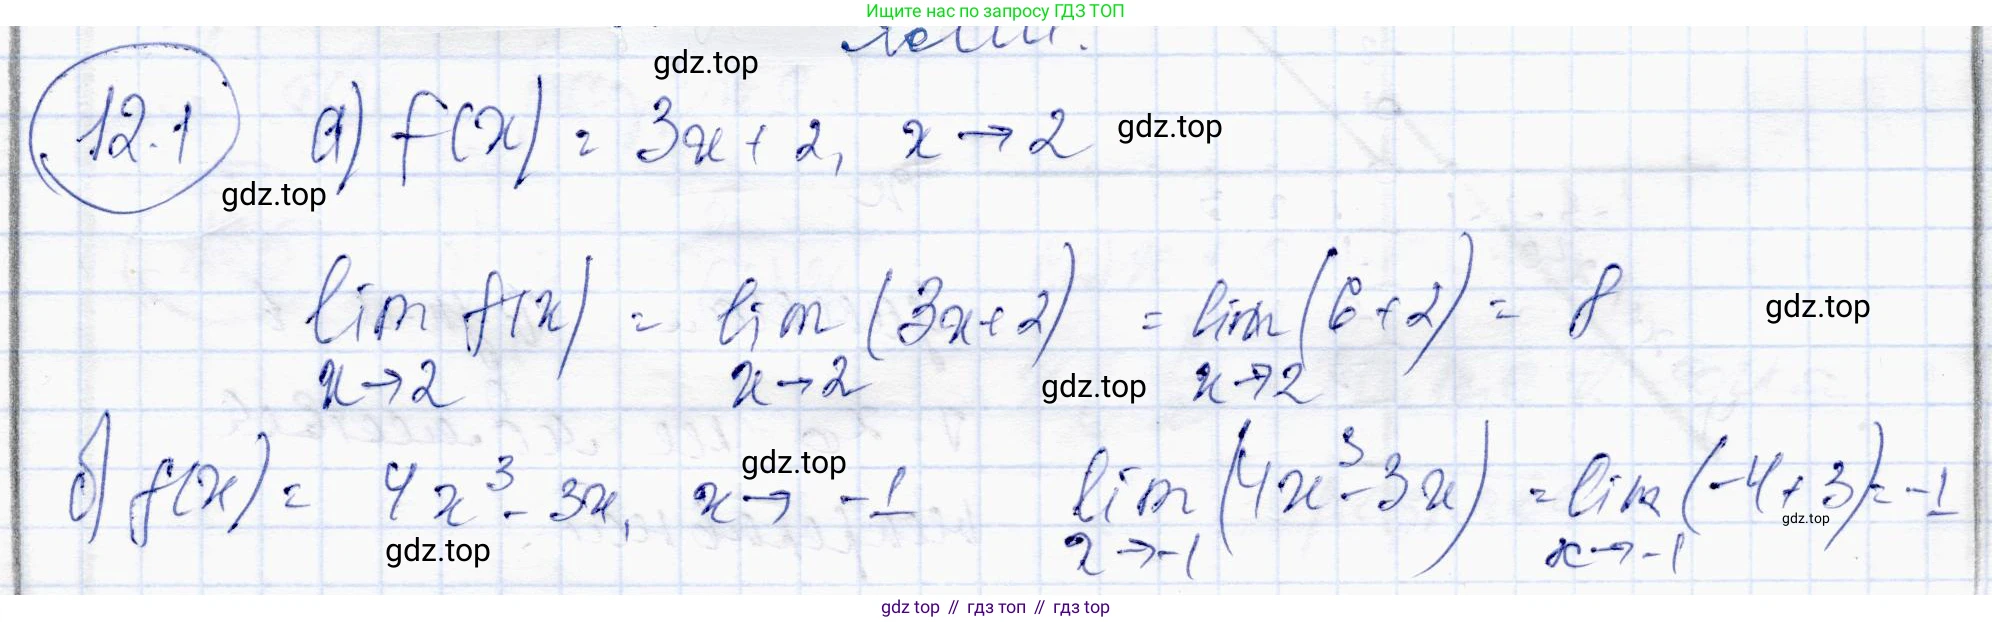 Ищите нас по запросу ГДЗ ТОП
gdz.top
12.1 а) f(x) = 3x + 2, x → 2 gdz.top
gdz.top
lim f(x) = lim (3x+2) = lim (6+2) = 8 gdz.top
x→2 x→2 gdz.top x→2
б) f(x) = 4x³ - 3x, x → -1 gdz.top lim (4x³-3x) = lim (-4+3) = -1
gdz.top x→-1 x→-1 gdz.top
gdz top // гдз топ // gdz top